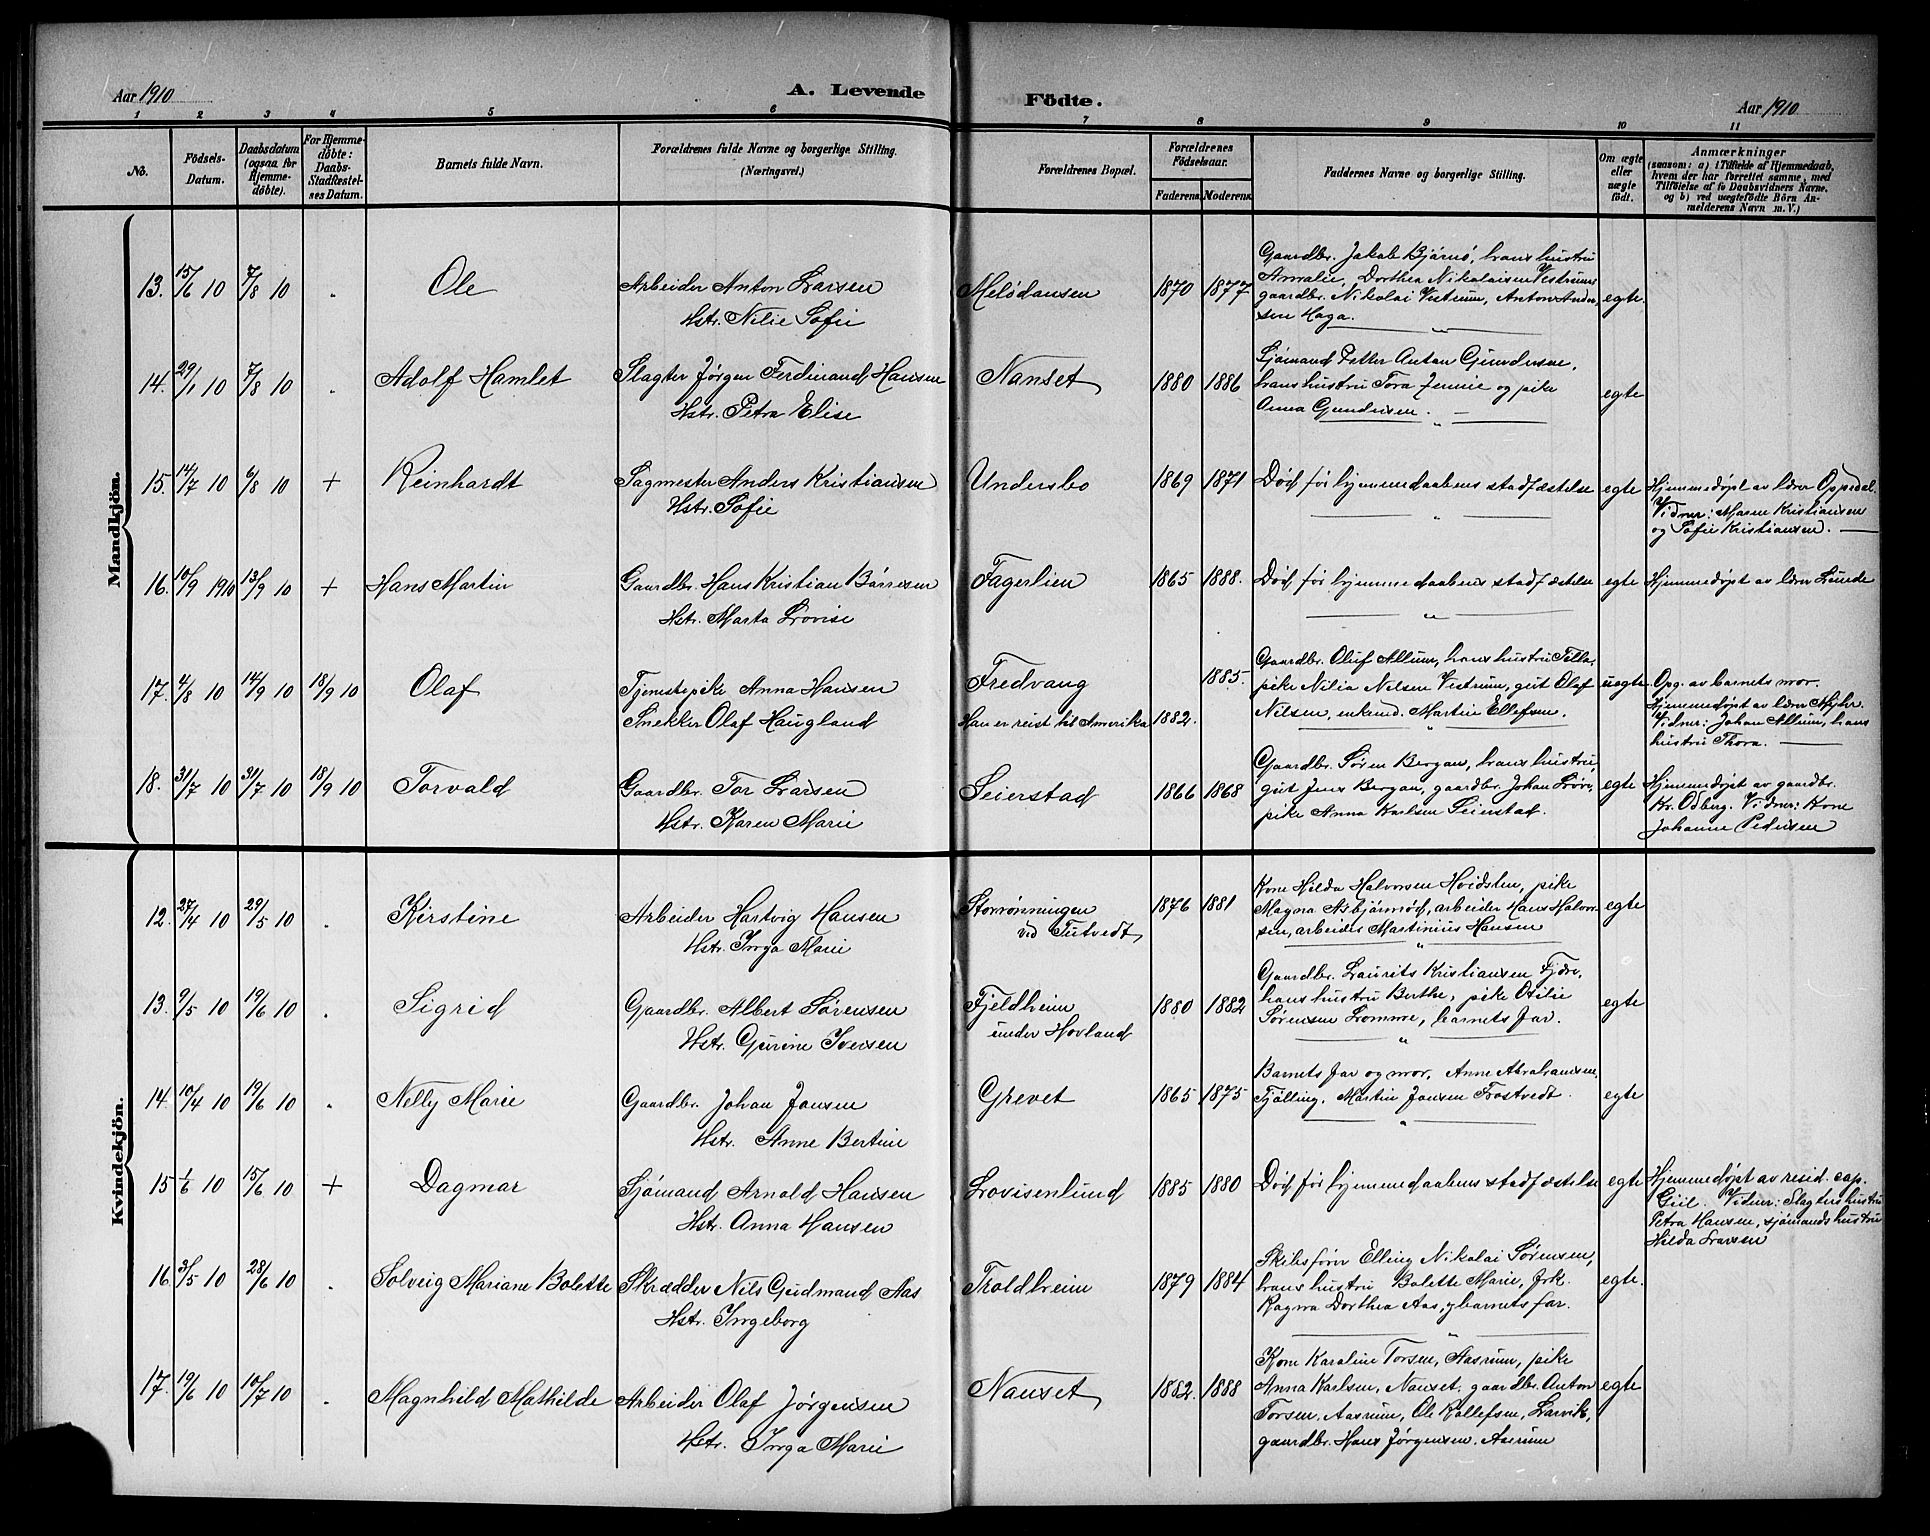 Aar 1910
A. Levende
Födte.
Aar 1910
1 2 3 4 5 6 7 8 9 10 11
No.
Födsels-
Datum.
Daabsdatum
(ogsaa for
Hjemme-
döbte).
For Hjemme-
döbte:
Daabs-
Stadfæstel-
ses Datum.
Barnets fulde Navn.
Forældrenes fulde Navne og borgerlige Stilling.
(Næringsvei.)
Forældrenes Bopæl.
Forældrenes
Födselsaar.
Faderens. Moderens.
Faddernes Navne og borgerlige Stilling.
Om ægte
eller
uægte
födt.
Anmærkninger
(saasom: a) i Tilfælde af Hjemmedaab,
hvem der har forrettet samme, med
Tilföielse af to Daabsvidners Navne.
og b) ved uægtefödte Börn An-
melderens Navn m.V.)
Mandkjön.
13. 15/6 10 7/8 10 " Ole
Arbeider Anton Larsen
Hstr. Nilie Sofie
Melødansen 1870 1877
Gaardbr. Jakob Bjørnø, hans hustru
Amalie, Dorthea Nikolaisen Vestrum,
gaardbr. Nikolai Vestrum, Anton Ander-
sen Haga.
egte.
14. 29/1 10 7/8 10 " Adolf Hamlet
Slagter Jørgen Ferdinand Hansen
Hstr. Petra Elise
Nanset 1880 1886
Sjømand Petter Anton Gundersen,
hans hustru Tora Jennie og pike
Anna Gundersen.
egte
15. 14/7 10 6/8 10 + Reinhardt
Sagmester Anders Kristiansen
Hstr. Sofie
Undersbo 1869 1871
Død før hjemmedaabens stadfæstelse
egte
Hjemmedøpt av lærer Oppedal.
Vidner: Maren Kristiansen
og Sofie Kristiansen.
16. 10/9 1910 13/9 10 + Hans Martin
Gaardbr. Hans Kristian Børresen
Hstr. Marta Lovise
Fagerlien 1865 1888.
Død før hjemmedaabens stadfæstelse
egte
Hjemmedøpt av lærer Lunde
17. 4/8 10 14/9 10 18/9 10 Olaf
Tjenestepike Anna Hansen
Snekker Olaf Haugland
Fredvang 1885.
Han er reist til Amerika 1882.
Gaardbr. Oluf Allum, hans hustru Tilla,
pike Nilia Nilsen Vestrum, gut Olaf
Nilsen, enkemd. Martin Ellefsen.
uegte.
Opg. av barnets mor.
Hjemmedøpt av lærer Myhr.
Vidner: Johan Allum, hans
hustru Thora.
18. 31/7 10 31/7 10 18/9 10 Torvald
Gaardbr. Tor Larsen
Hstr. Karen Marie
Seierstad 1866 1868
Gaardbr. Søren Bergan, hans hustru,
gut Jens Bergan, gaardbr. Johan Løve,
pike Anna Karlsen Seierstad.
egte
Hjemmedøpt av gaardbr.
Kr. Odberg. Vidner: Kone
Johanne Pedersen
Kvindekjön.
12. 27/4 10 29/5 10 " Kirstine
Arbeider Hartvig Hansen
Hstr. Inga Marie
Storrønningen
ved Tutvedt, 1876 1881
Kone Hilda Halvorsen Hvidsten, pike
Magna Asbjørnrød, arbeider Hans Halvor-
sen, arbeider Martinius Hansen
egte
13. 9/5 10 19/6 10 " Sigrid
Gaardbr. Albert Sørensen
Hstr. Gurine Iversen
Fjeldheim
under Hovland 1880 1882
Gaardbr. Laurits Kristiansen Fjære,
hans hustru Berthe, pike Otilie
Sørensen Lomme, barnets far.
egte
14. 10/4 10 19/6 10 " Nelly Marie
Gaardbr. Johan Jansen
Hstr. Anne Bertine
Grevet 1865 1875
Barnets far og mor, Anne Abrahamsen,
Tjølling, Martin Jansen Frostvedt.
egte
15 1/6 10 15/6 10 + Dagmar
Sjømand Arnold Hansen
Hstr. Anna Hansen
Lovisenlund 1885 1880
Død før hjemmedaabens stadfæstelse
egte
Hjemmedøpt av resid. cap.
Giil. Vidner: Slagters hustru
Petra Hansen, sjømands hustru
Hilda Larsen
16. 3/5 10 28/6 10 " Solveig Mariane Bolette
Skrædder Nils Gudmand Aas
Hstr. Ingeborg
Troldheim 1879 1884
Skibsfører Elling Nikolai Sørensen,
hans hustru Bolette Marie, frk.
Ragna Dorthea Aas, barnets far.
egte.
17. 19/6 10 10/7 10 " Magnhild Mathilde
Arbeider Olaf Jørgensen
Hstr. Inga Marie
Nanset 1882. 1888
Kone Karoline Torsen, Aasrum, pike
Anna Karlsen, Nanset, gaardbr. Anton
Torsen, Aasrum, Ole Rollefsen, Larvik,
gaardbr. Hans Jørgensen, Aasrum
egte